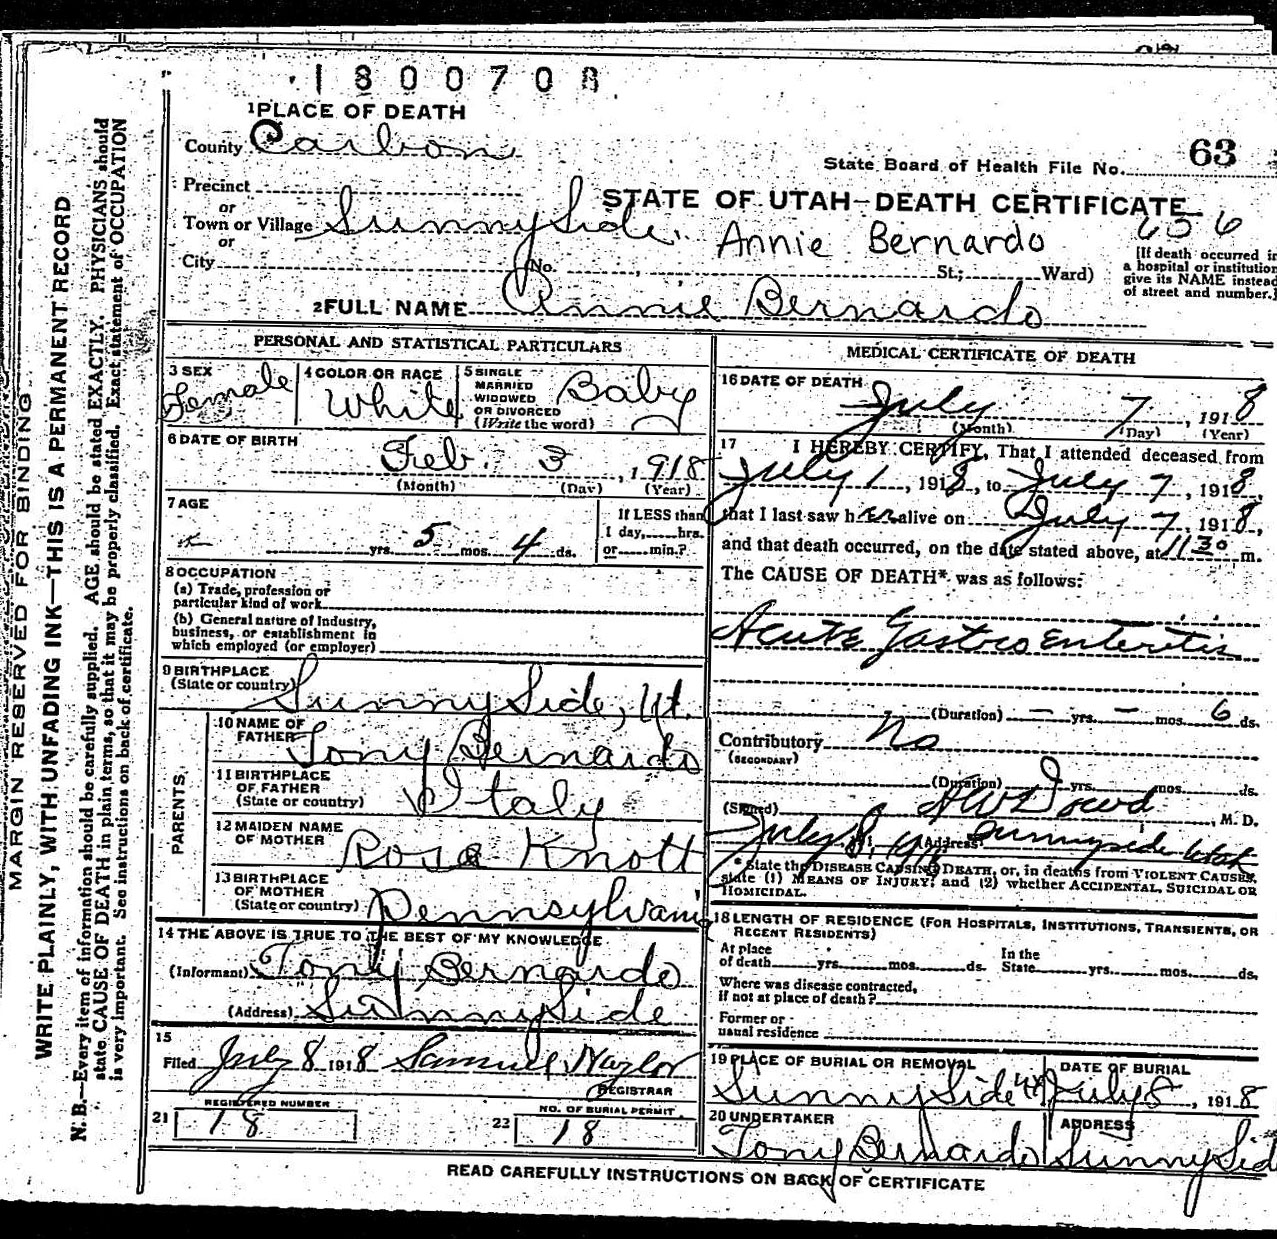 1800708
1 PLACE OF DEATH
County Carbon
State Board of Health File No. 63
Precinct
or
STATE OF UTAH—DEATH CERTIFICATE
Town or Village Sunny Side.
or
Annie Bernardo
656
City No. St.; Ward)
[If death occurred in
a hospital or institution
give its NAME instead
of street and number.]
2 FULL NAME Annie Bernardo
PERSONAL AND STATISTICAL PARTICULARS
3 SEX Female
4 COLOR OR RACE White
5 SINGLE
MARRIED
WIDOWED
OR DIVORCED
(Write the word) Baby
6 DATE OF BIRTH
Feb. 3, 1918
(Month) (Day) (Year)
7 AGE
yrs. 5 mos. 4 ds.
If LESS than
1 day, hrs.
or min.?
8 OCCUPATION
(a) Trade, profession or
particular kind of work
(b) General nature of Industry,
business, or establishment in
which employed (or employer)
9 BIRTHPLACE
(State or country) Sunny Side, Ut.
PARENTS
10 NAME OF
FATHER Tony Bernardo
11 BIRTHPLACE
OF FATHER
(State or country) Italy
12 MAIDEN NAME
OF MOTHER Rose Knott
13 BIRTHPLACE
OF MOTHER
(State or country) Pennsylvania
14 THE ABOVE IS TRUE TO THE BEST OF MY KNOWLEDGE
(Informant) Tony Bernardo
(Address) Sunny Side
15
Filed July 8 1918 Samuel Naylor
REGISTRAR
21 REGISTERED NUMBER
18
22 NO. OF BURIAL PERMIT
18
MEDICAL CERTIFICATE OF DEATH
16 DATE OF DEATH
July 7, 1918
(Month) (Day) (Year)
17 I HEREBY CERTIFY, That I attended deceased from
July 1, 1918, to July 7, 1918,
that I last saw her alive on July 7, 1918,
and that death occurred, on the date stated above, at 11:30 m.
The CAUSE OF DEATH* was as follows:
Acute Gastro Enteritis
(Duration) — yrs. — mos. 6 ds.
Contributory No
(SECONDARY)
(Duration) yrs. mos. ds.
(Signed) A W Dowd, M. D.
July 8, 1918 (Address) Sunnyside Utah
* State the DISEASE CAUSING DEATH, or, in deaths from VIOLENT CAUSES,
state (1) MEANS OF INJURY; and (2) whether ACCIDENTAL, SUICIDAL OR
HOMICIDAL.
18 LENGTH OF RESIDENCE (FOR HOSPITALS, INSTITUTIONS, TRANSIENTS, OR
RECENT RESIDENTS)
At place
of death yrs. mos. ds.
In the
State yrs. mos. ds.
Where was disease contracted,
if not at place of death?
Former or
usual residence
19 PLACE OF BURIAL OR REMOVAL
Sunny Side Ut
DATE OF BURIAL
July 8, 1918
20 UNDERTAKER
Tony Bernardo
ADDRESS
Sunny Side
READ CAREFULLY INSTRUCTIONS ON BACK OF CERTIFICATE
MARGIN RESERVED FOR BINDING
WRITE PLAINLY, WITH UNFADING INK—THIS IS A PERMANENT RECORD
N. B.—Every item of information should be carefully supplied. AGE should be stated EXACTLY. PHYSICIANS should
state CAUSE OF DEATH in plain terms, so that it may be properly classified. Exact statement of OCCUPATION
is very important. See instructions on back of certificate.